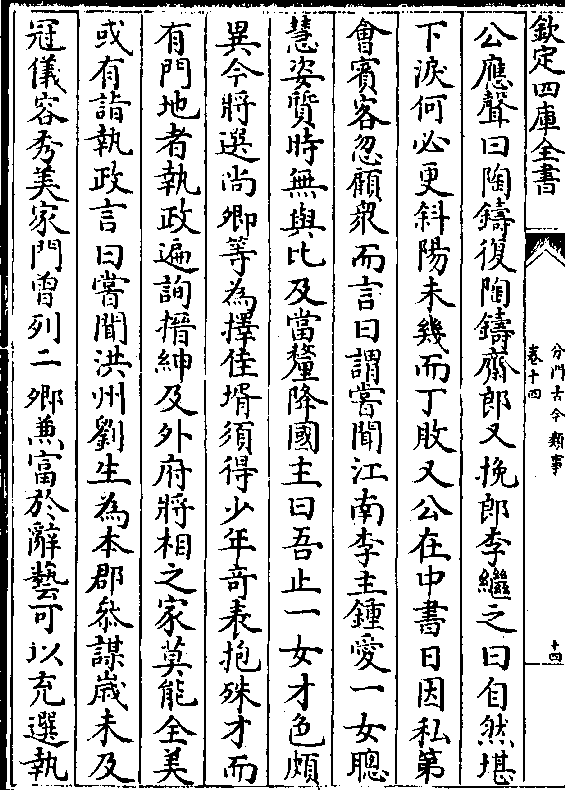 欽定四庫全書
分門古今類事
卷十四
十四
公應聲曰陶鑄復陶鑄齋郎又挽郎李繼之曰自然堪
下淚何必更斜陽未幾而丁敗又公在中書日因私第
會賓客忽顧衆而言曰謂嘗聞江南李主鍾愛一女聰
慧姿質時無與比及當釐降國主曰吾止一女才色頗
異今將選尚卿等為擇佳壻須得少年奇表抱殊才而
有門地者執政遍詢搢紳及外府將相之家莫能全美
或有詣執政言曰嘗聞洪州劉生為本郡叅謀嵗未及
冠儀容秀美家門曾列二卿兼富於辭藝可以充選執